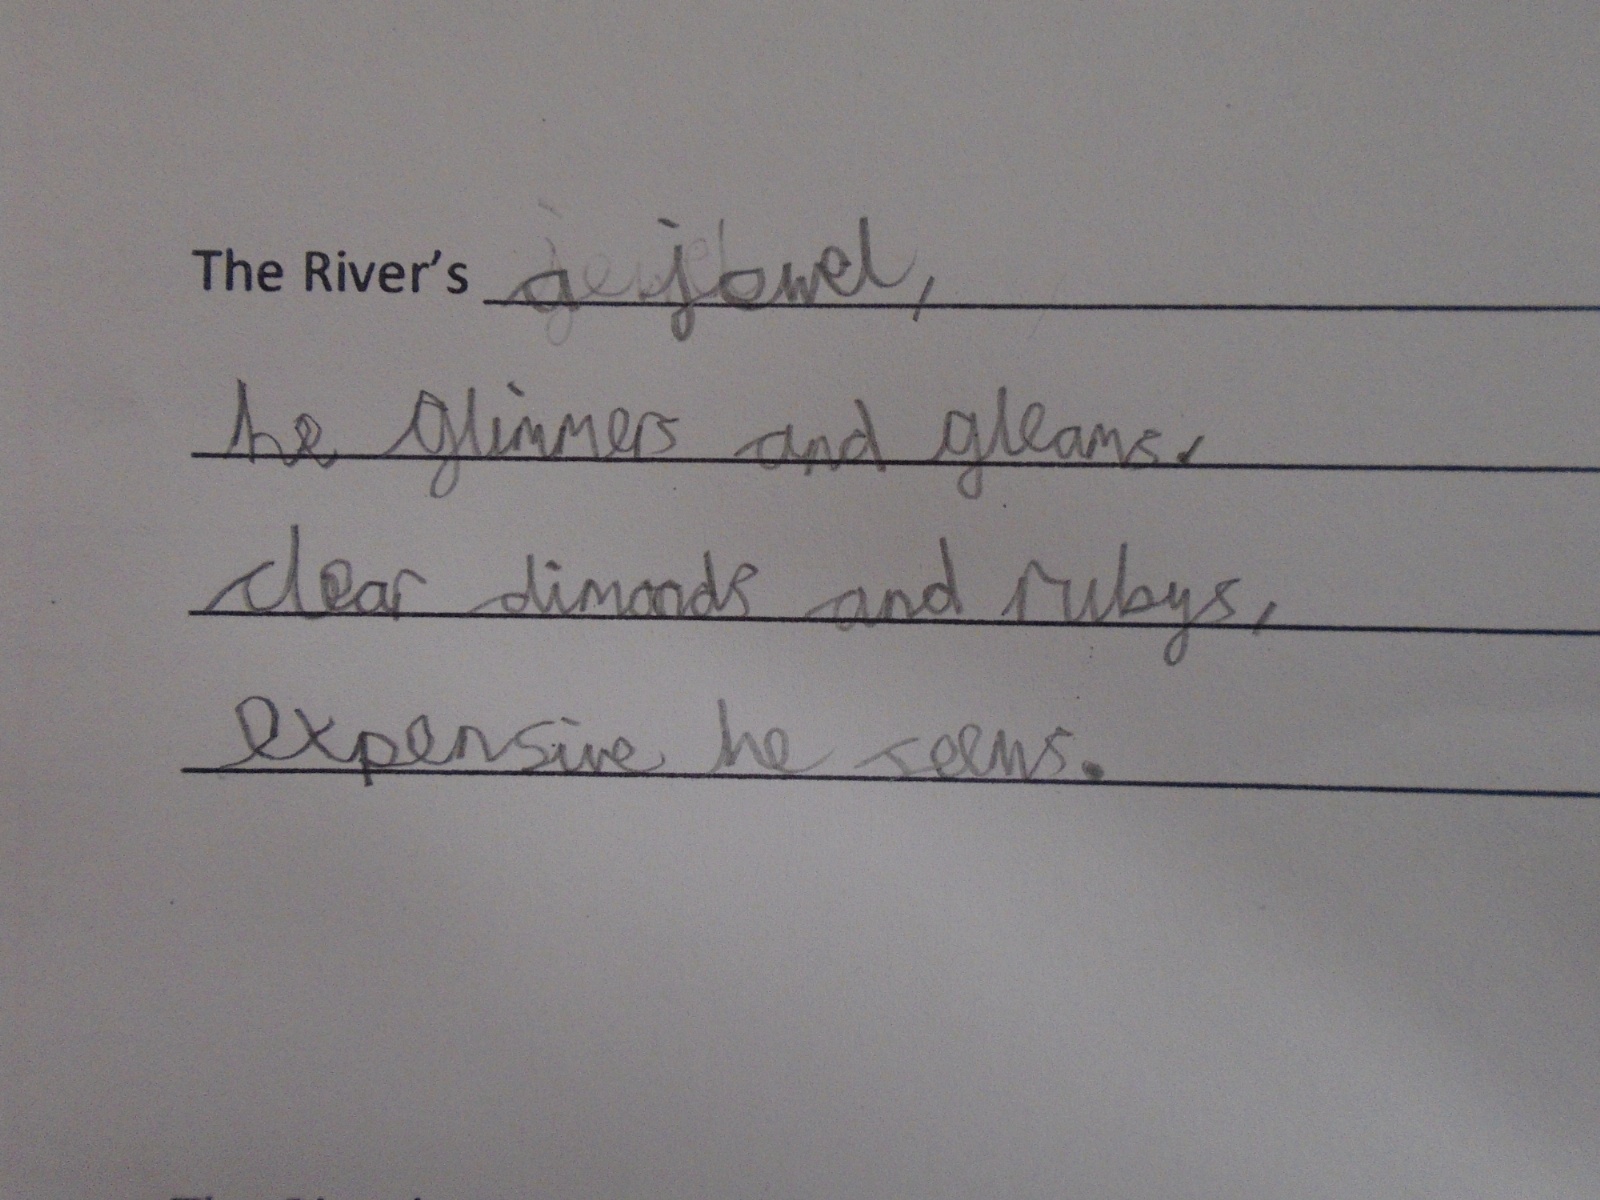 The River's a jowel,
he glimmers and gleams.
clear dimonds and rubys,
expensive he seems.